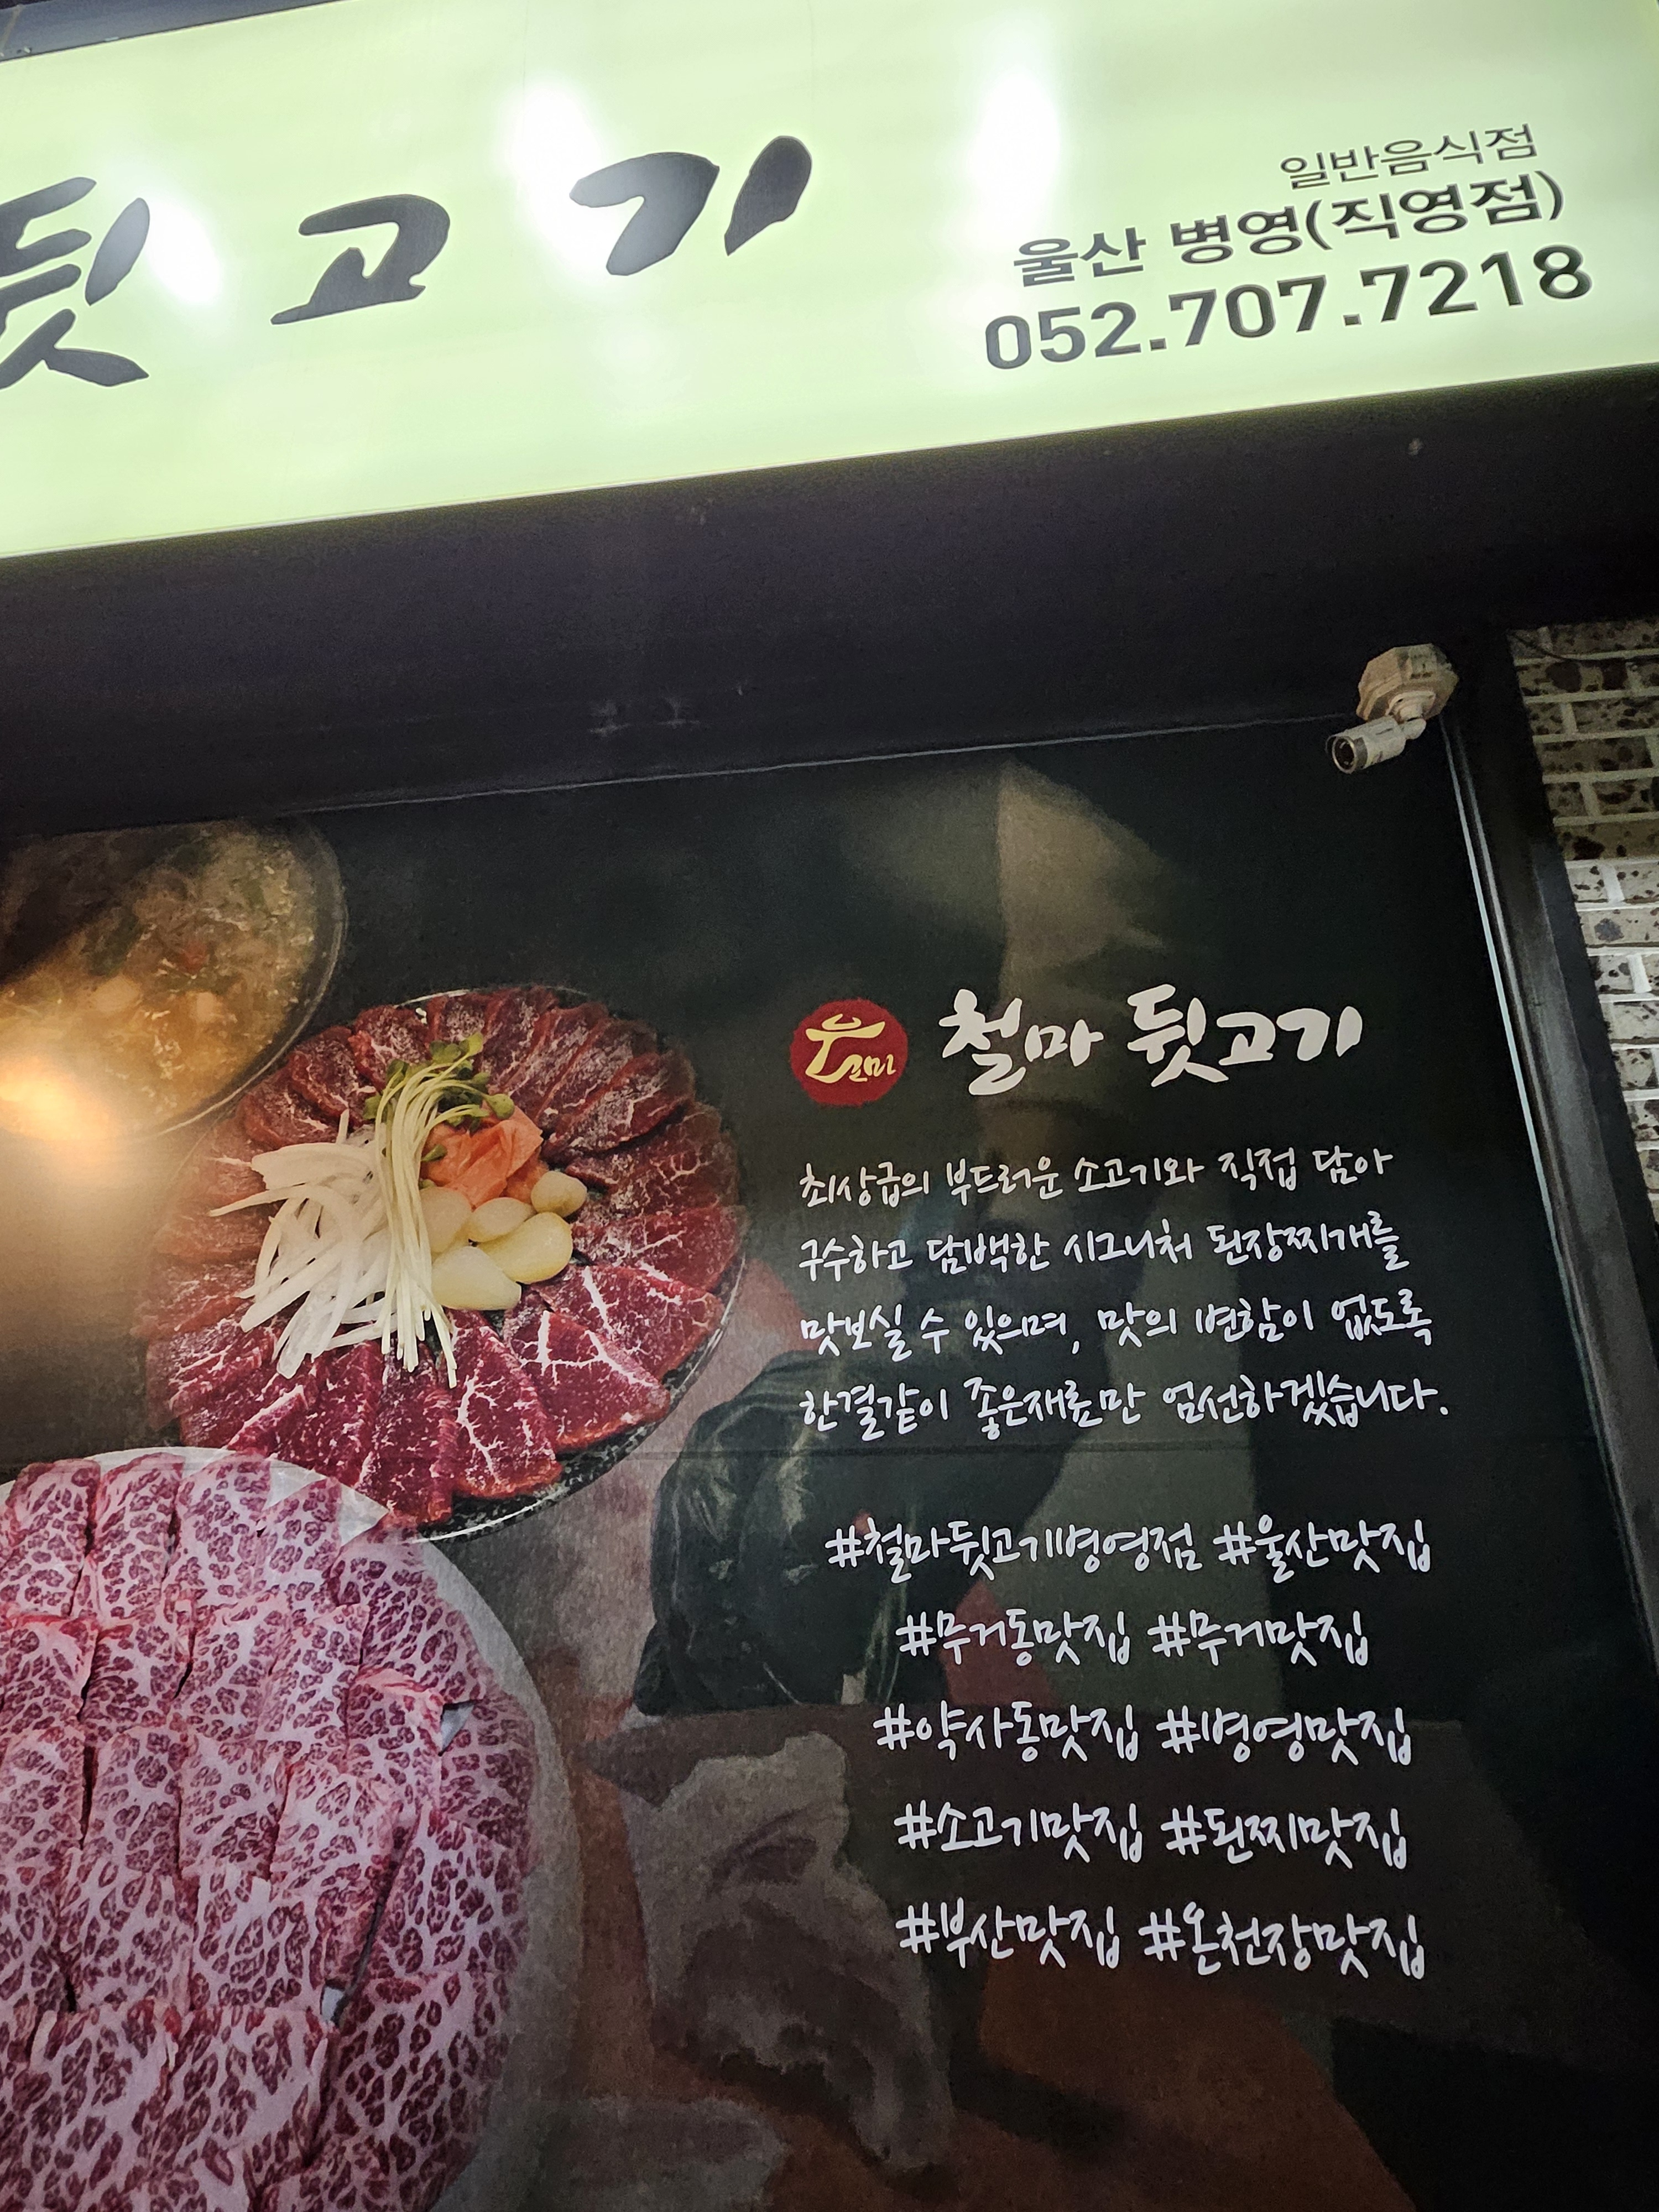 뒷고기
일반음식점
울산 병영(직영점)
052.707.7218
철마 뒷고기
최상급의 부드러운 소고기와 직접 담아
구수하고 담백한 시그니처 된장찌개를
맛보실 수 있으며, 맛의 변함이 없도록
한결같이 좋은재료만 엄선하겠습니다.
#철마뒷고기병영점 #울산맛집
#무거동맛집 #무거맛집
#약사동맛집 #병영맛집
#소고기맛집 #된찌맛집
#부산맛집 #온천장맛집